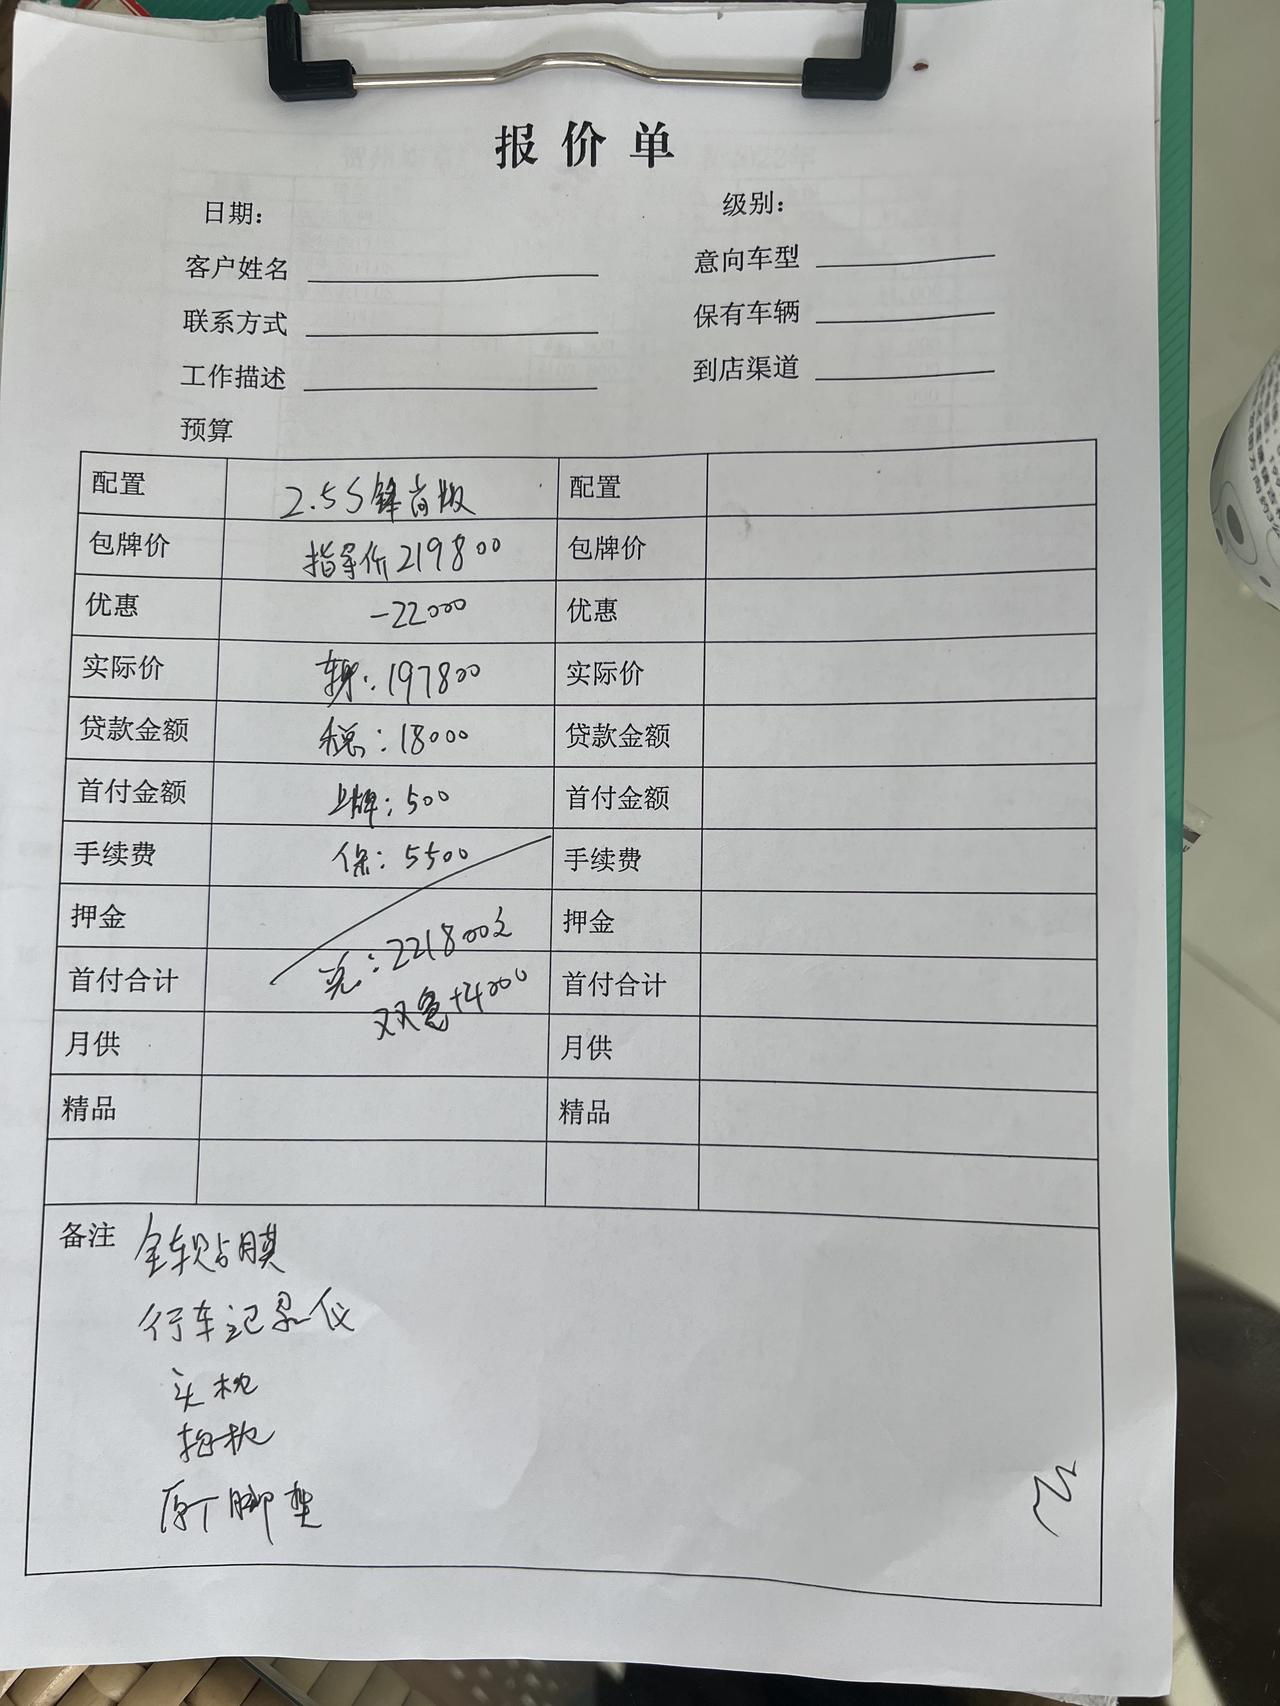 报价单
日期：
级别：
客户姓名
意向车型
联系方式
保有车辆
工作描述
到店渠道
预算
配置 2.5S锋尚版 配置
包牌价 指导价219800 包牌价
优惠 -22000 优惠
实际价 车身：197800 实际价
贷款金额 税：18000 贷款金额
首付金额 上牌：500 首付金额
手续费 保：5500 手续费
押金 押金
首付合计 总：221800元 首付合计
双色+4000
月供 月供
精品 精品
备注 全车贴膜
行车记录仪
头枕
抱枕
原厂脚垫